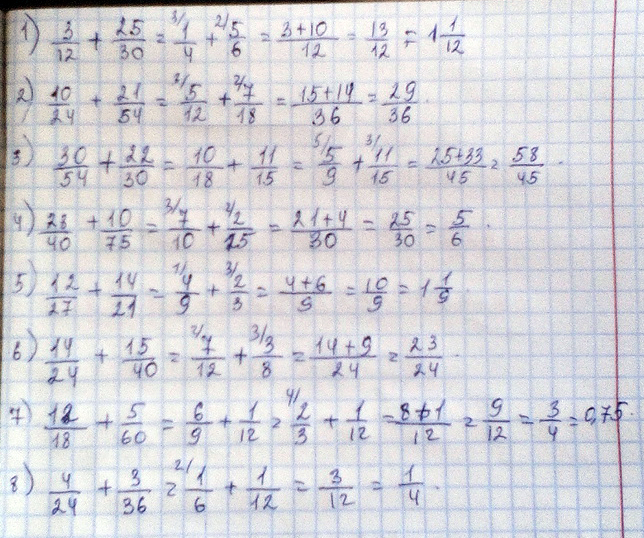 1) 3/12 + 25/30 = 3/ 1/4 + 2/ 5/6 = 3+10/12 = 13/12 = 1 1/12
2) 10/24 + 21/54 = 3/ 5/12 + 2/ 7/18 = 15+14/36 = 29/36.
3) 30/54 + 22/30 = 10/18 + 11/15 = 5/ 5/9 + 3/ 11/15 = 25+33/45 = 58/45.
4) 28/40 + 10/75 = 3/ 7/10 + 2/ 2/15 = 21+4/30 = 25/30 = 5/6.
5) 12/27 + 14/21 = 1/ 4/9 + 3/ 2/3 = 4+6/9 = 10/9 = 1 1/9.
6) 14/24 + 15/40 = 2/ 7/12 + 3/ 3/8 = 14+9/24 = 23/24.
7) 12/18 + 5/60 = 6/9 + 1/12 = 4/ 2/3 + 1/12 = 8+1/12 = 9/12 = 3/4 = 0,75.
8) 4/24 + 3/36 = 2/ 1/6 + 1/12 = 3/12 = 1/4.